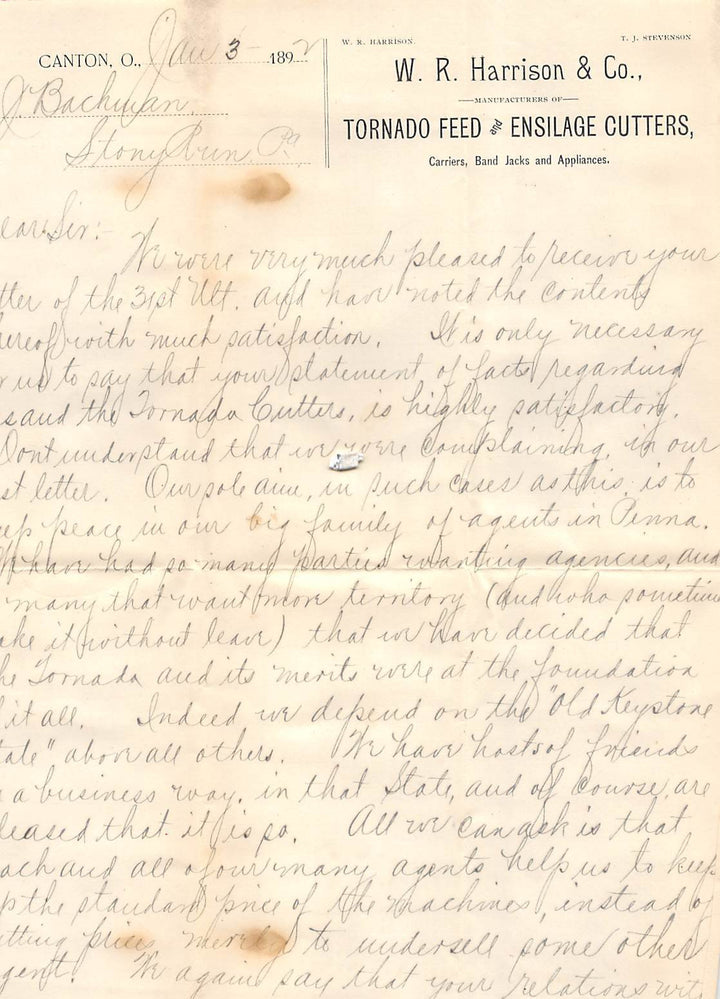 W. R. HARRISON. T. J. STEVENSON
CANTON, O., Jan 3 1892
W. R. Harrison & Co.,
MANUFACTURERS OF
TORNADO FEED AND ENSILAGE CUTTERS,
Carriers, Band Jacks and Appliances.
J Bachman.
Stony Run. Pa
ear Sir:-
We were very much pleased to receive your
tter of the 31st Ult. and have noted the contents
hereof with much satisfaction. It is only necessary
r us to say that your statement of facts regarding
s and the Tornado Cutters, is highly satisfactory.
Dont understand that we were complaining, in our
st letter. Our sole aim, in such cases as this, is to
eep peace in our big family of agents in Penna.
We have had so many parties wanting agencies, and
many that want more territory (and who sometim
ake it without leave) that we have decided that
he Tornado and its merits were at the foundation
f it all. Indeed we depend on the "Old Keystone
tate" above all others. We have hosts of friends
n a business way, in that State, and of course, are
leased that it is so. All we can ask is that
ach and all of our many agents help us to keep
p the standard price of the machines, instead of
utting prices merely to undersell some other
gent. We again say that your relations wit